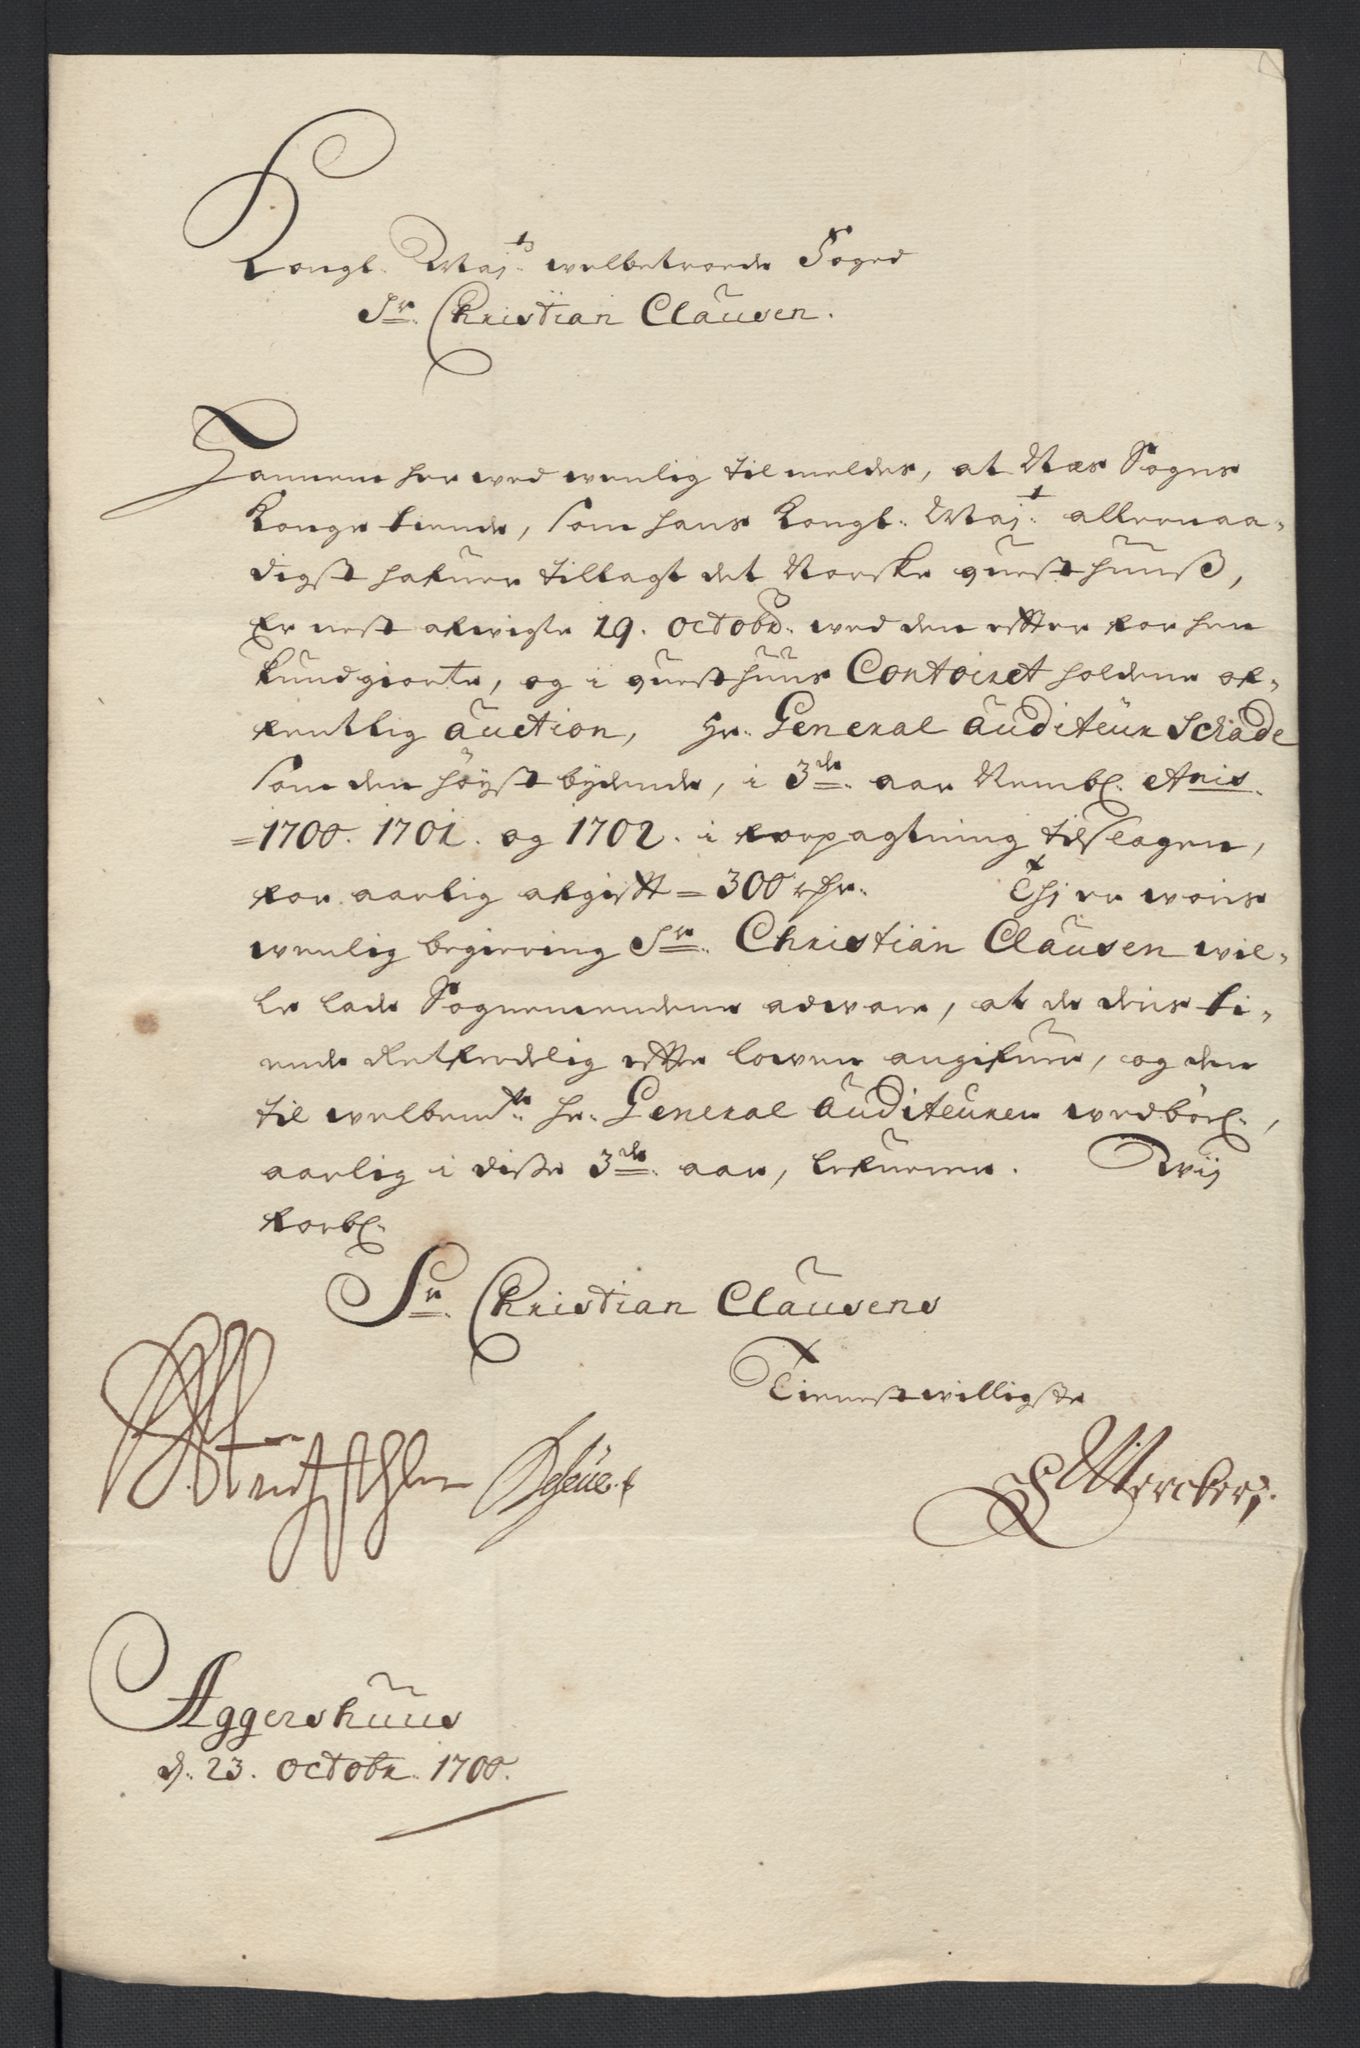 Kongl. Maj.ts welbetroede Foged
Sr. Christian Clausen.
Hannem her wed wenlig tilmeldes, at Næs Sogns
Konge tiende, som hans Kongl. Maj.t allernaa-
digst hafuer tillagt det Norske questhuuß,
Er nest afwigte 19. Octobr. wed den effter forhen
kundgiorte, og i questhuus Contoiret holdene of-
fentlig Auction, Hr. General Auditeur Schade
som den høyst bydende, i 3de. aar Nembl. Anis.
=1700. 1701. og 1702. i forpagtning tilslagen,
for aarlig afgifft = 300 rdr. Thj er woris
wenlig begiering Sr. Christian Clausen wil-
le lade Sognemendene advare, at de deris ti-
ende Retferdelig effter lowen angifuer, og den
til welbemte. Hr. General Auditeuren wedbørl.,
aarlig i disse 3de. aar, lefuerer. Wij
forbl.
Sr. Christian Clausens
Tienstwilligste
S Werckers.
Aggershuus
d. 23. Octobr. 1700.